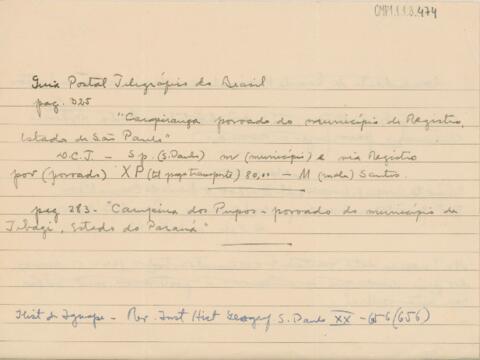 CMM.1.1.3.474
Guia Postal Telegráfico do Brasil
pag. 325
"Carapiranga povoado do município de Registro,
Estado de São Paulo"
D.C.T. — S p. (S. Paulo) m (município) e via Registro
por (povoado) XP (tel pago transporte) 80,00 — M (mala) Santos.
pag 283 - "Campina dos Pupos - povoado do município de
Tibagi, Estado do Paraná"
Hist de Iguape - Rev. Inst Hist Geogr S. Paulo XX - 656 (656)